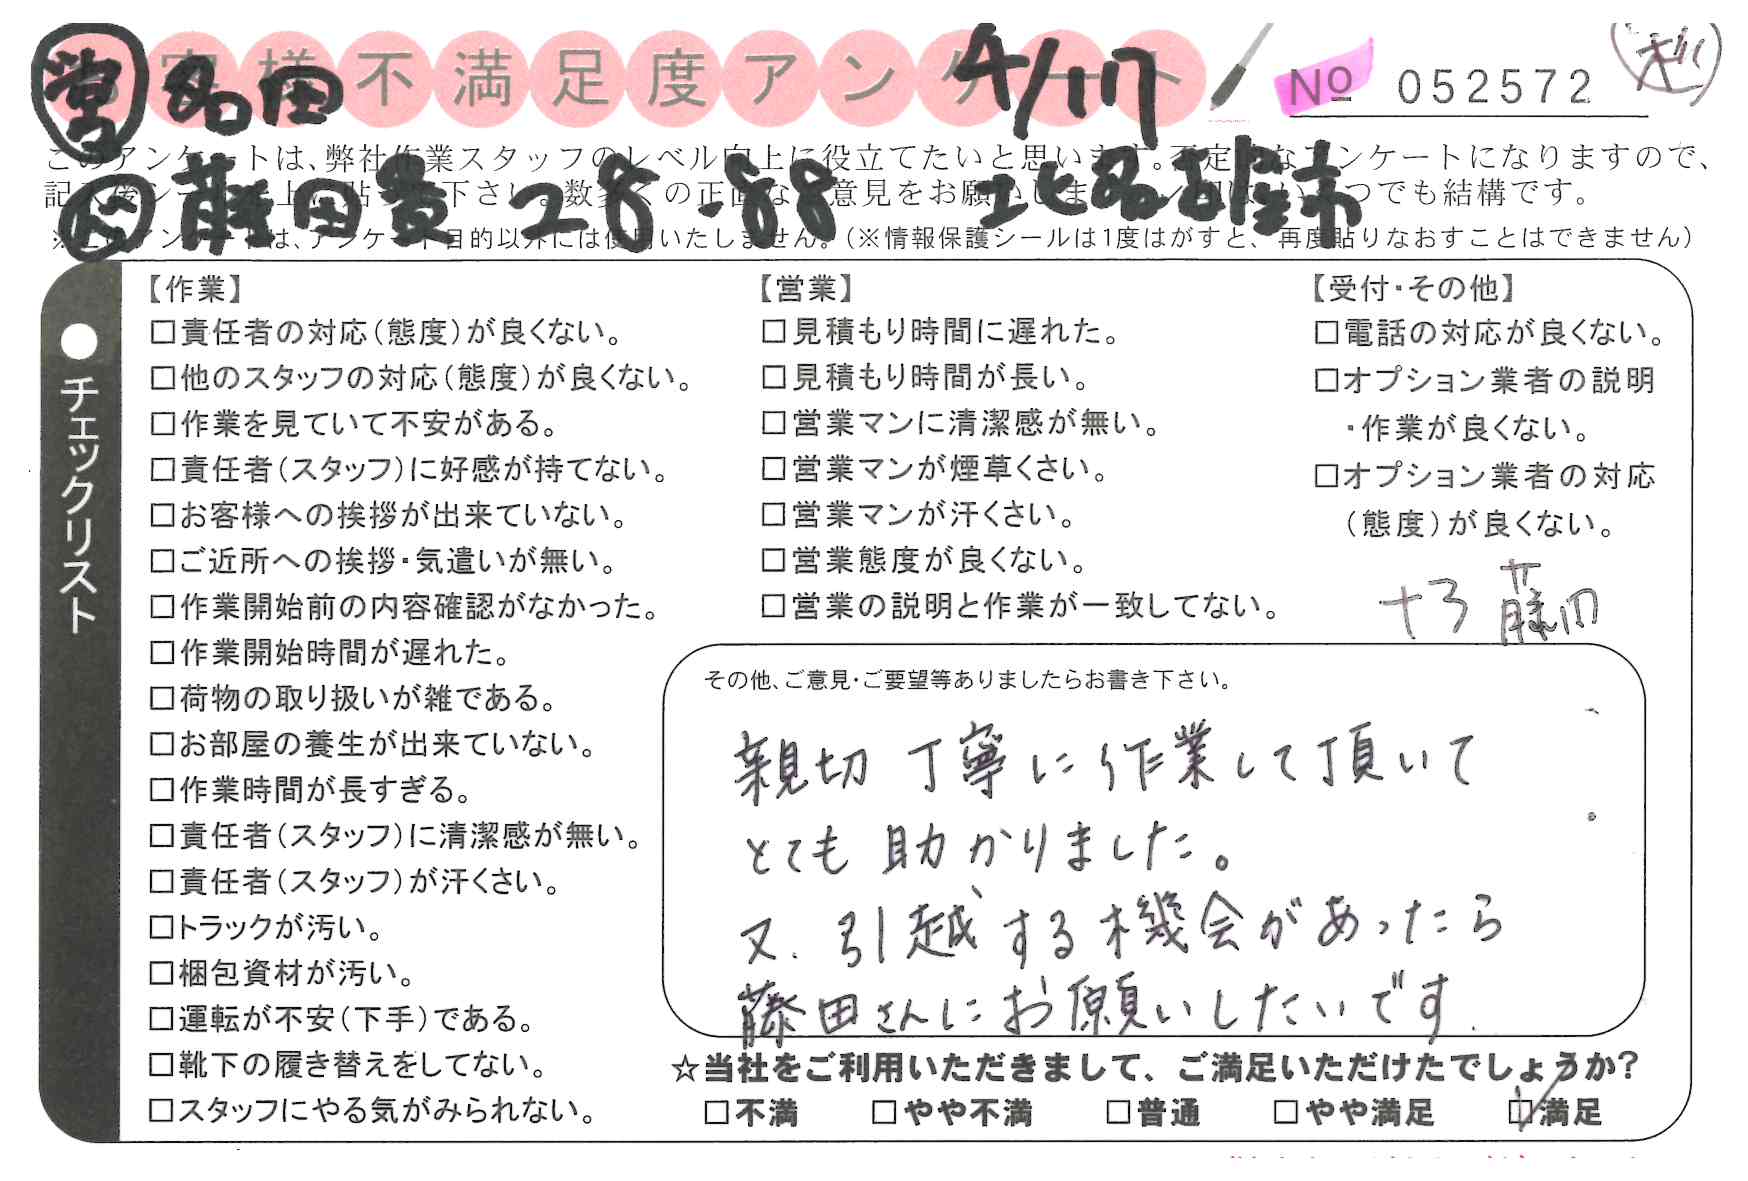 お客様不満足度アンケート
営 名田 4/17
No 052572
このアンケートは、弊社作業スタッフのレベル向上に役立てたいと思います。不定期なアンケートになりますので、
記入後シールを上に貼って下さい。数多くの正直なご意見をお願いします。
いくつでも結構です。
藤田貴 28-88 北名古屋市
※このアンケートは、アンケート目的以外には使用いたしません。(※情報保護シールは1度はがすと、再度貼りなおすことはできません)
●チェックリスト
【作業】
□責任者の対応(態度)が良くない。
□他のスタッフの対応(態度)が良くない。
□作業を見ていて不安がある。
□責任者(スタッフ)に好感が持てない。
□お客様への挨拶が出来ていない。
□ご近所への挨拶・気遣いが無い。
□作業開始前の内容確認がなかった。
□作業開始時間が遅れた。
□荷物の取り扱いが雑である。
□お部屋の養生が出来ていない。
□作業時間が長すぎる。
□責任者(スタッフ)に清潔感が無い。
□責任者(スタッフ)が汗くさい。
□トラックが汚い。
□梱包資材が汚い。
□運転が不安(下手)である。
□靴下の履き替えをしてない。
□スタッフにやる気がみられない。
【営業】
□見積もり時間に遅れた。
□見積もり時間が長い。
□営業マンに清潔感が無い。
□営業マンが煙草くさい。
□営業マンが汗くさい。
□営業態度が良くない。
□営業の説明と作業が一致してない。
【受付・その他】
□電話の対応が良くない。
□オプション業者の説明
・作業が良くない。
□オプション業者の対応
(態度)が良くない。
藤田
その他、ご意見・ご要望等ありましたらお書き下さい。
親切 丁寧に作業して頂いて
とても助かりました。
又、引越する機会があったら
藤田さんにお願いしたいです.
☆当社をご利用いただきまして、ご満足いただけたでしょうか?
□不満 □やや不満 □普通 □やや満足 ☑満足